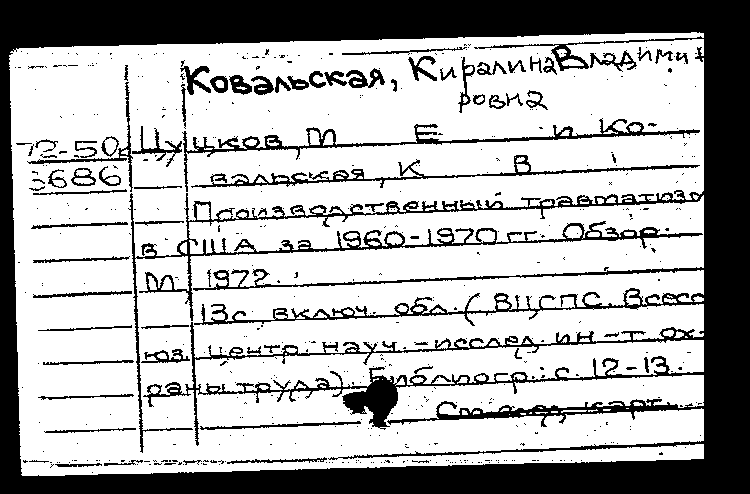 Ковальская, Киралина Владими
ровна
72-50 Цуцков, М Е и Ко-
3686 вальская, К В
Производственный травматизм
в США за 1960-1970 гг. Обзор.
М, 1972.
13с. включ. обл. (ВЦСПС. Всесо
юз. центр. науч.-исслед. ин-т ох-
раны труда). Библиогр.: с. 12-13.
См. след. карт.